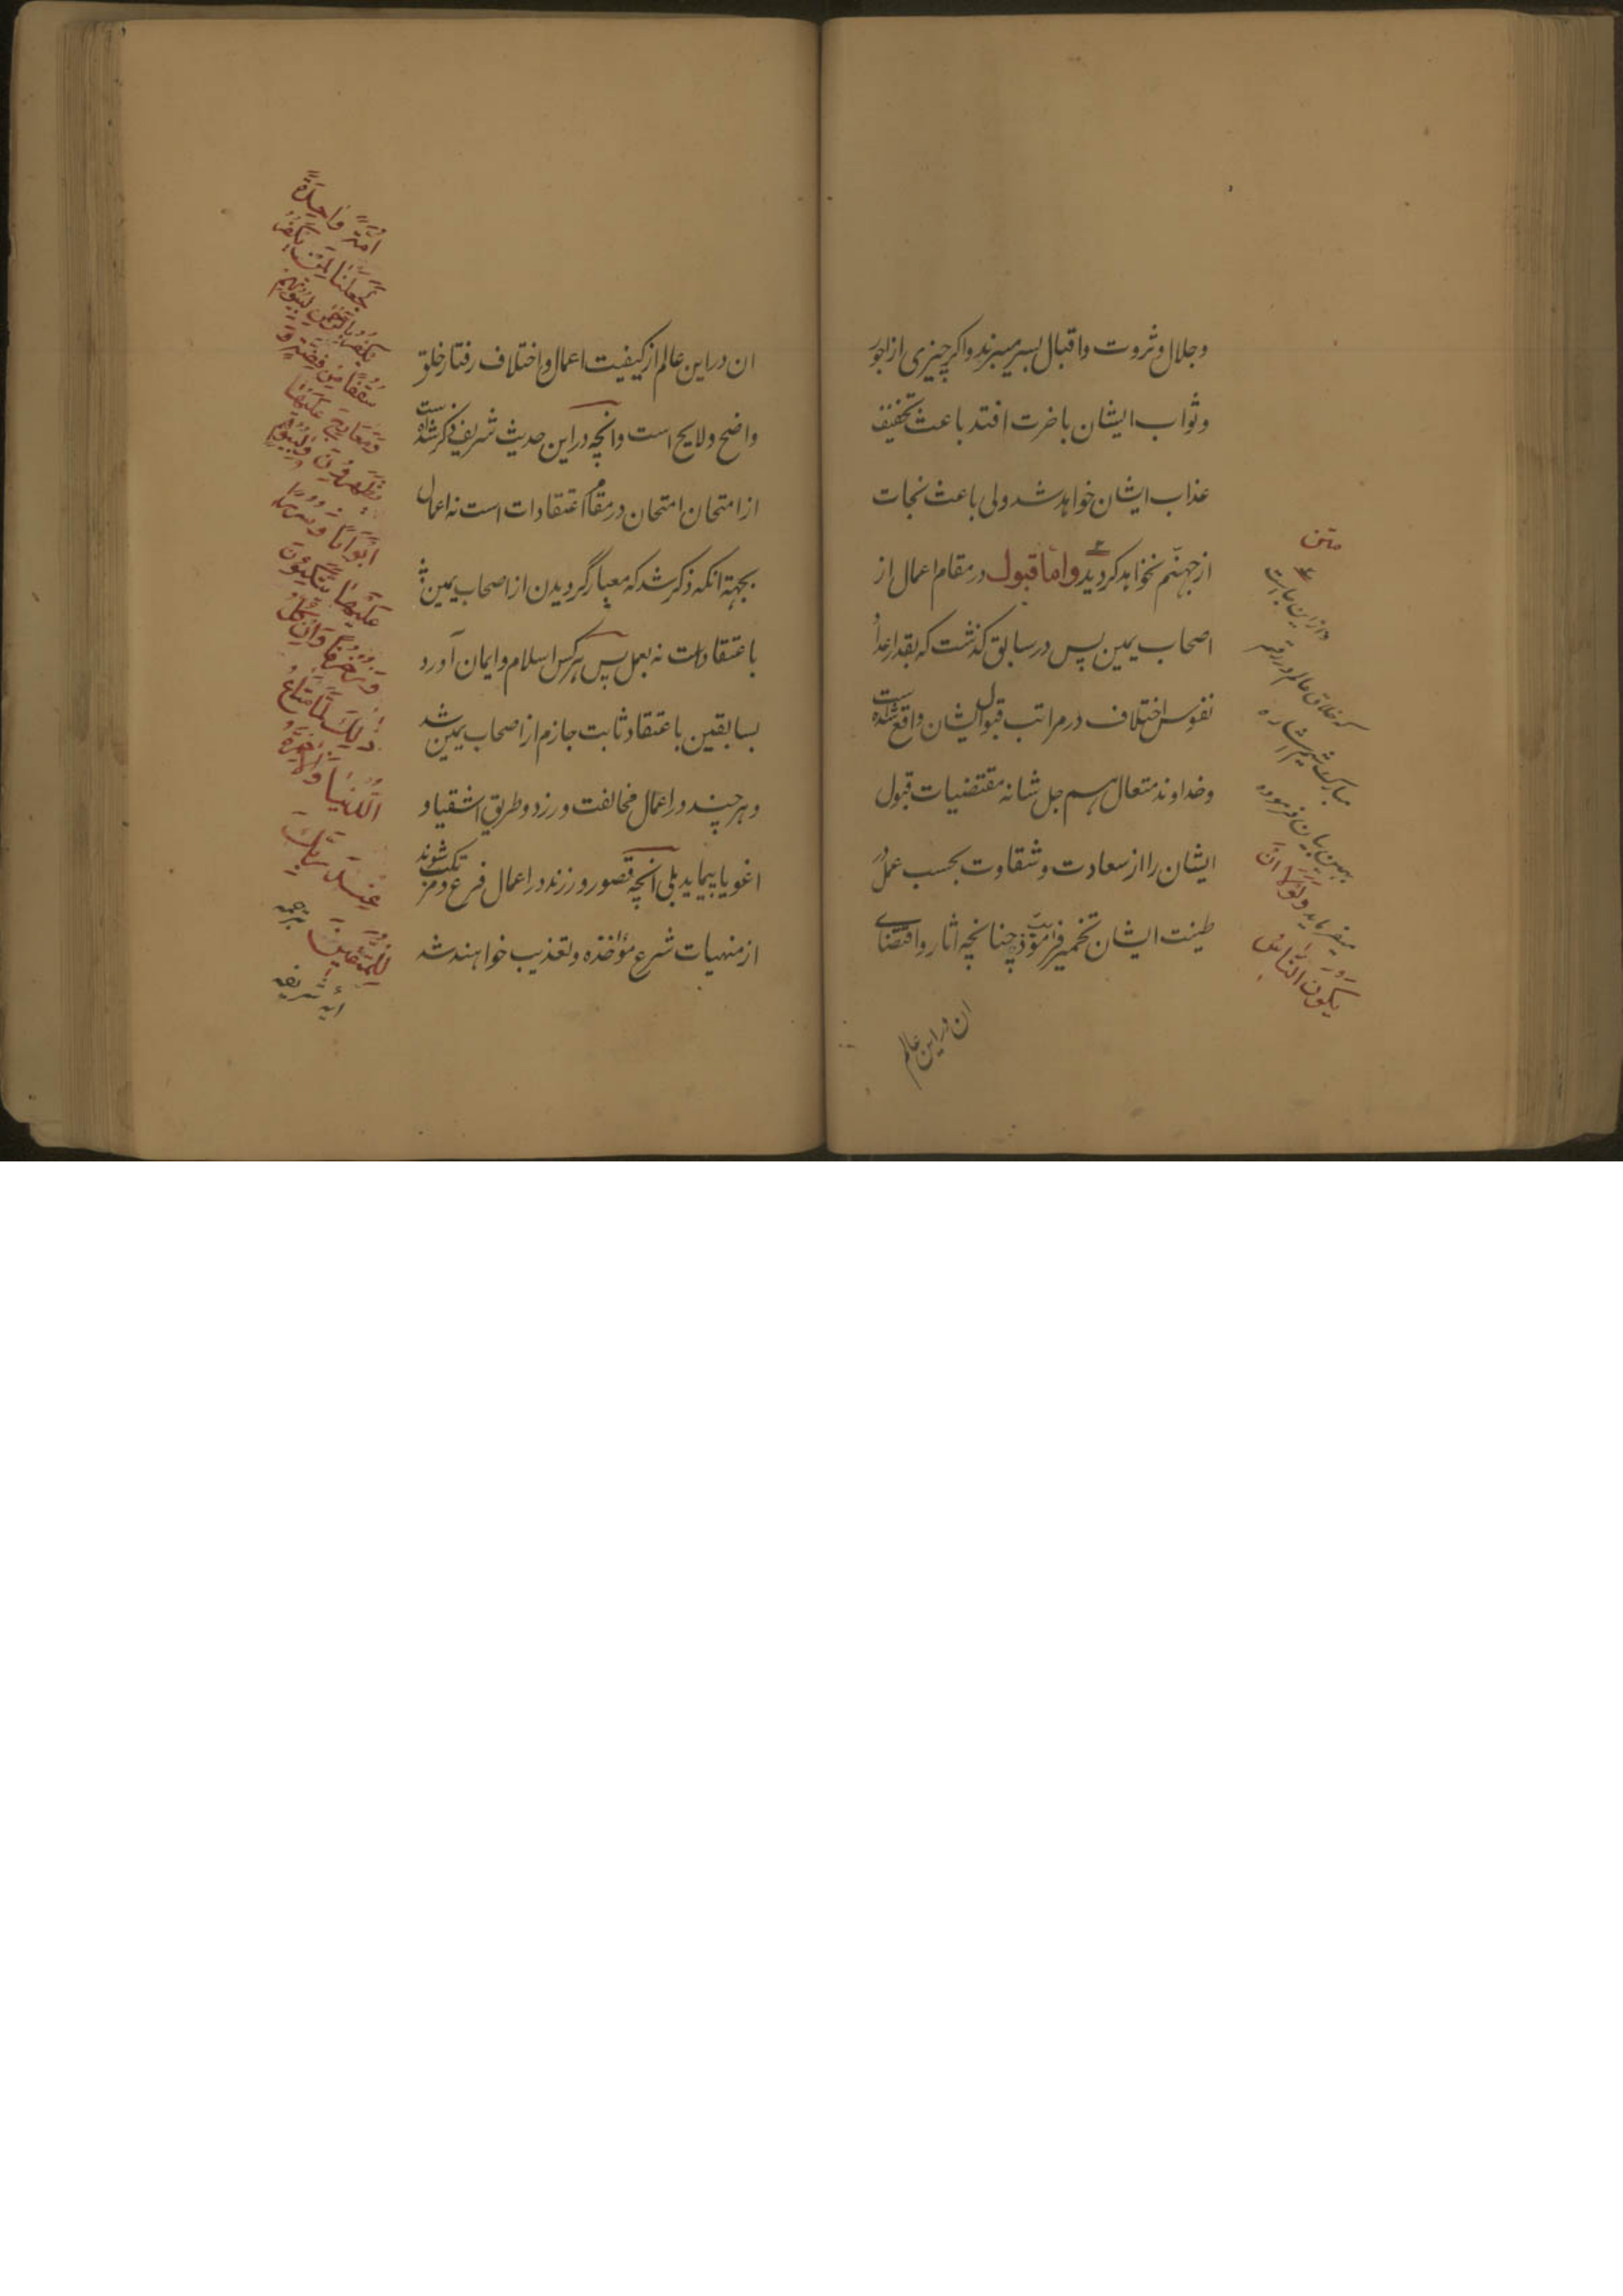 وجلال وثروت واقبال بسر میبرند واکر چیزی از اجور
وثواب ایشان باخرت افتد باعث تخفیف
عذاب ایشان خواهد شد ولی باعث نجات
از جهنّم نخواهد کردید واما قبول در مقام اعمال از
اصحاب یمین پس در سابق کذشت که بقدر اعداد
نفوس اختلاف در مراتب قبول ایشان واقع شده است
وخداوند متعال هم جل شانه مقتضیات قبول
ایشان را از سعادت وشقاوت بحسب عمل در
طینت ایشان تخمیر فرموده چنانچه اثار واقتضای
ان در این عالم
متن
واز این جا است
که خلاق عالم در
مبارکش اشاره
بهمین بیان فرموده
میفرماید وَلَوْلا اَنْ
یَکُونَ النَّاسُ
ان در این عالم از کیفیت اعمال واختلاف رفتار خلق
واضح ولایح است وانچه در این حدیث شریف ذکر شده است
از امتحان امتحان در مقام اعتقادات است نه اعمال
بجهة انکه ذکر شد که معیار گردیدن از اصحاب یمین
باعتقاد است نه بعمل پس هر کس اسلام وایمان آورد
بسابقین باعتقاد ثابت جازم از اصحاب یمین شد
وهر چند در اعمال مخالفت ورزد وطریق اشقیا و
اغویا بپیماید بلی انچه قصور ورزند در اعمال فرع ومرتکب شوند
از منهیات شرع مؤاخذه وتعذیب خواهند شد
اُمَّةً وَاحِدَةً
لَجَعَلْنَا لِمَنْ یَکْفُرُ
یَکْفُرُ بِالرَّحْمٰنِ لِبُیُوتِهِمْ
سُقُفًا مِنْ فِضَّةٍ وَ
وَمَعَارِجَ عَلَیْهَا
یَظْهَرُونَ وَلِبُیُوتِهِمْ
اَبْوَابًا وَسُرُرًا
عَلَیْهَا یَتَّکِئُونَ
وَزُخْرُفًا وَاِنْ کُلُّ
ذٰلِکَ لَمَّا مَتَاعُ
الدُّنْیَا وَالْاٰخِرَةُ
عِنْدَ رَبِّکَ
لِلْمُتَّقِینَ ترجمه
ایه شریفه